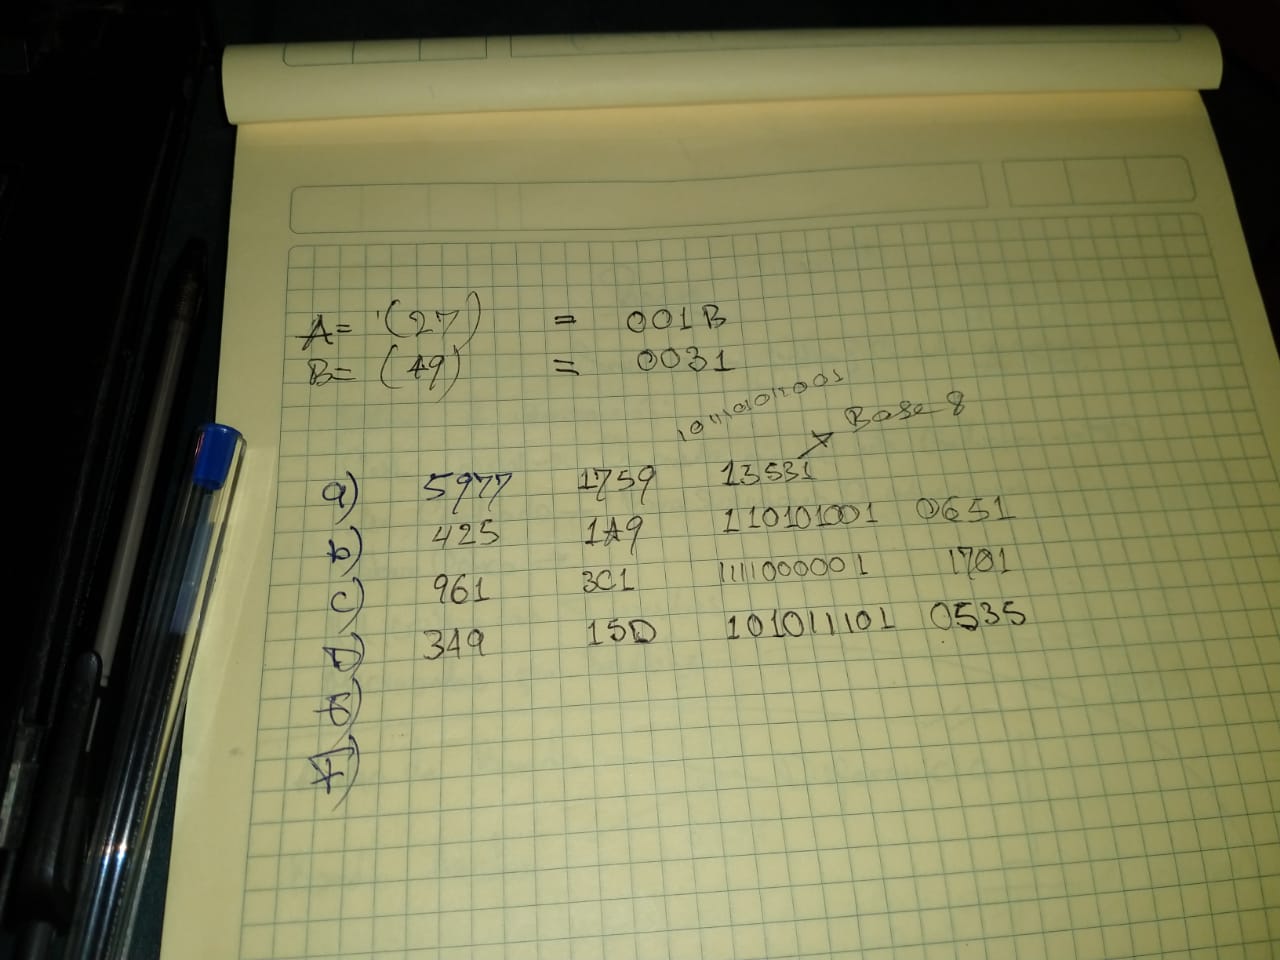 A= (27) = 001B
B= (49) = 0031
1011101011001
Base 8
a) 5977 1759 13531
b) 425 1A9 110101001 0651
c) 961 3C1 1111000001 1701
349 15D 101011101 0535